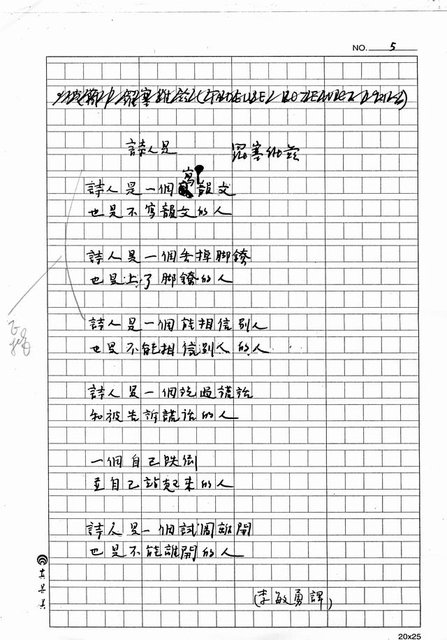 NO. 5
詩人是
詩人是一個寫韻文
也是不寫韻文的人
詩人是一個掉脚鐐
也是上了脚鐐的人
詩人是一個能相信別人
也是不能相信別人的人
詩人是一個說過謊話
和被告訴謊話的人
一個自己跌倒
並自己站起來的人
詩人是一個試圖離開
也是不能離開的人
(李敏勇譯)
20x25